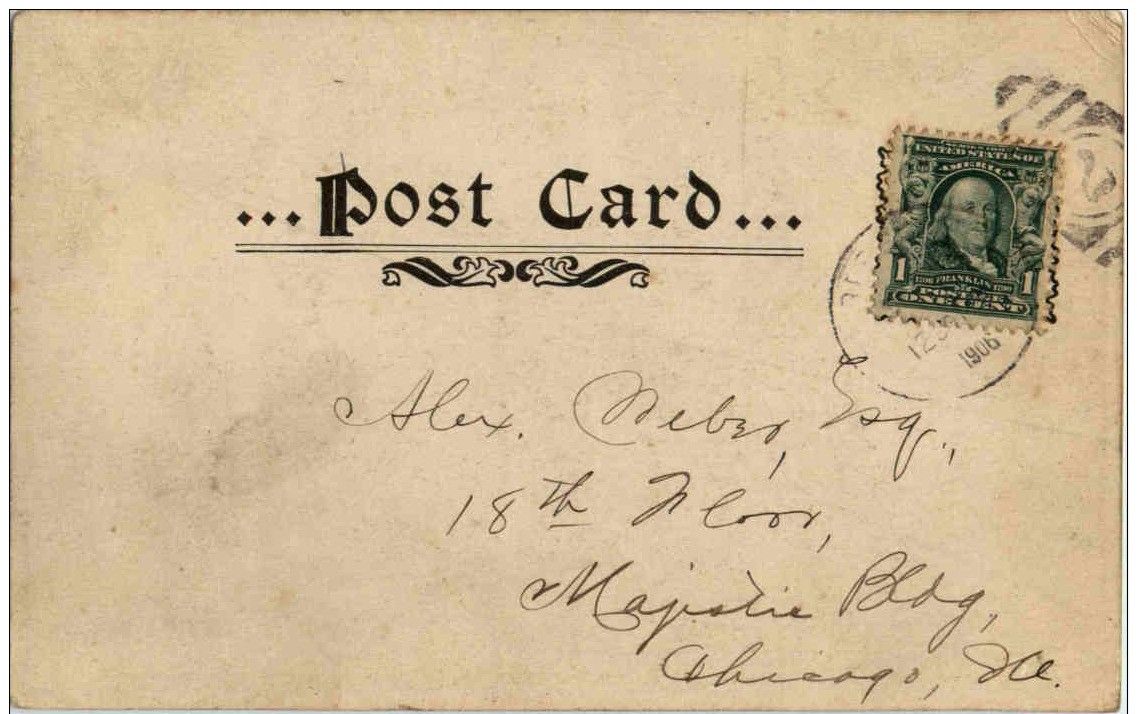 ...Post Card...
SERIES 1902
UNITED STATES OF
AMERICA
1 1706 FRANKLIN 1790 1
POSTAGE
ONE CENT
1906
2
Alex. Weber, Esq.,
18th Floor,
Majestic Bldg,
Chicago, Ill.